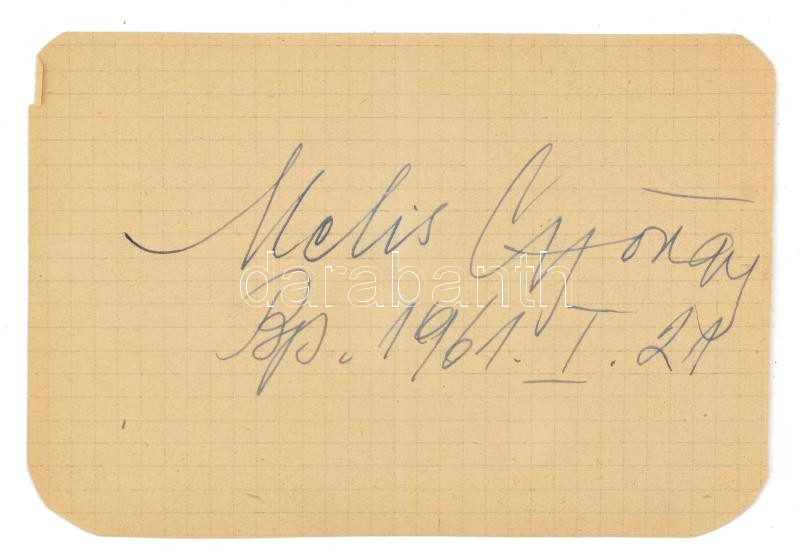 Melis György
darabanth
Bp. 1961. I. 21